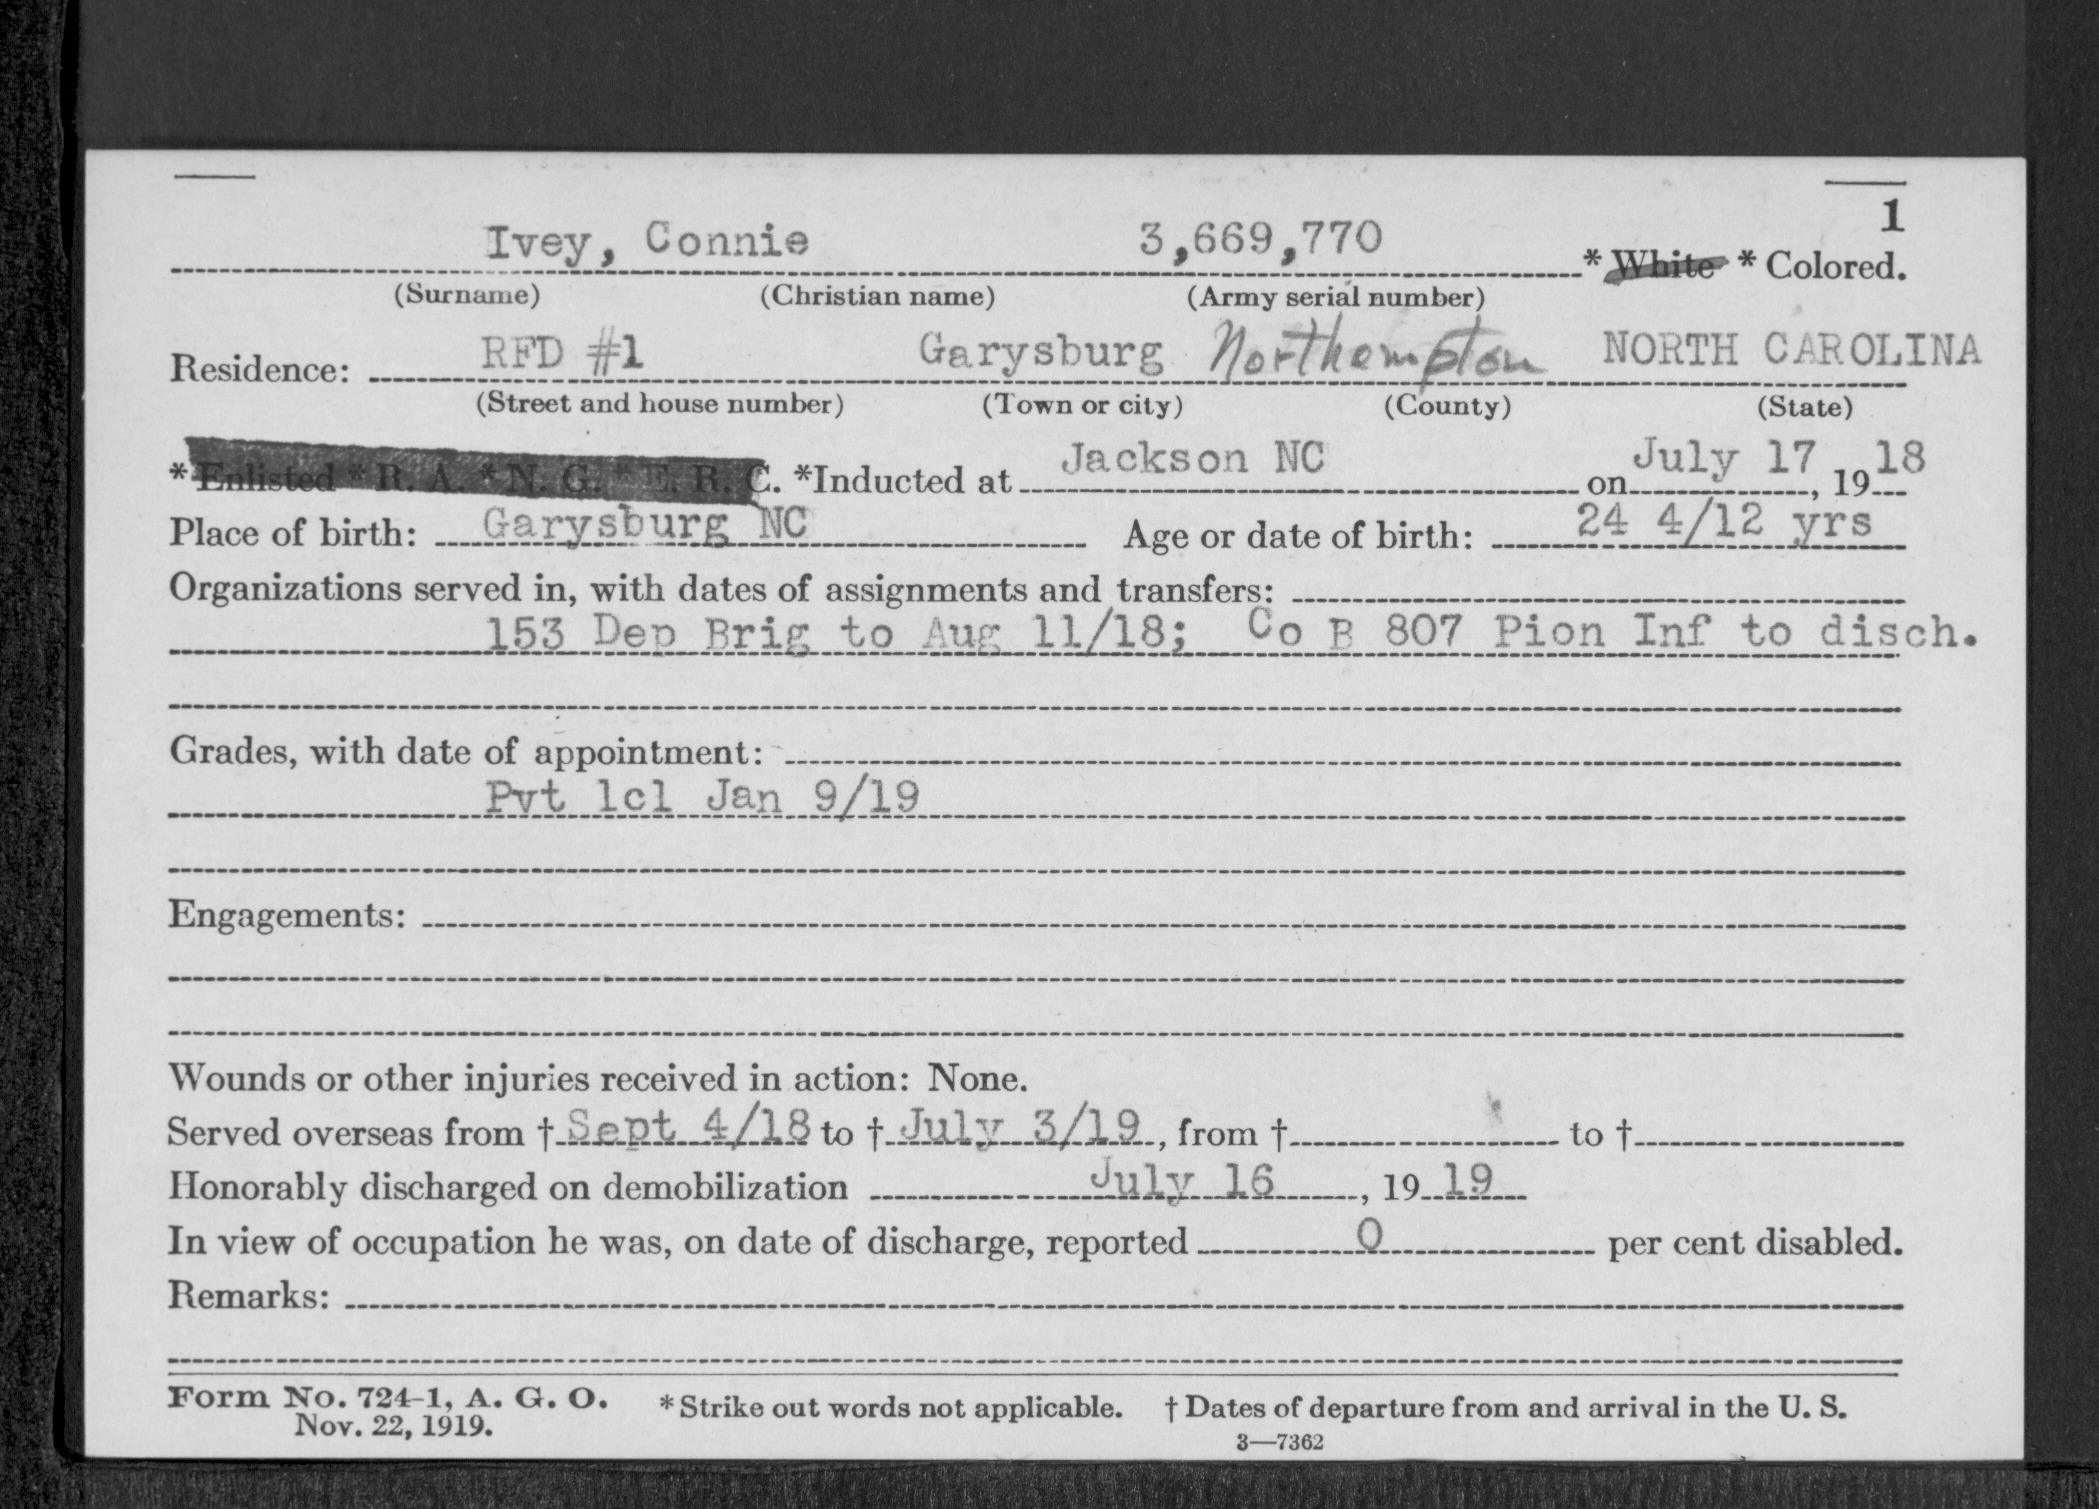 1
Ivey, Connie 3,669,770 * White * Colored.
(Surname) (Christian name) (Army serial number)
Residence: RFD #1 Garysburg Northampton NORTH CAROLINA
(Street and house number) (Town or city) (County) (State)
* Enlisted * R. A. * N. G. * E. R. C. *Inducted at Jackson NC on July 17, 1918
Place of birth: Garysburg NC Age or date of birth: 24 4/12 yrs
Organizations served in, with dates of assignments and transfers:
153 Dep Brig to Aug 11/18; Co B 807 Pion Inf to disch.
Grades, with date of appointment:
Pvt 1cl Jan 9/19
Engagements:
Wounds or other injuries received in action: None.
Served overseas from † Sept 4/18 to † July 3/19, from † to †
Honorably discharged on demobilization July 16, 19 19
In view of occupation he was, on date of discharge, reported 0 per cent disabled.
Remarks:
Form No. 724-1, A. G. O. * Strike out words not applicable. † Dates of departure from and arrival in the U. S.
Nov. 22, 1919.
3—7362